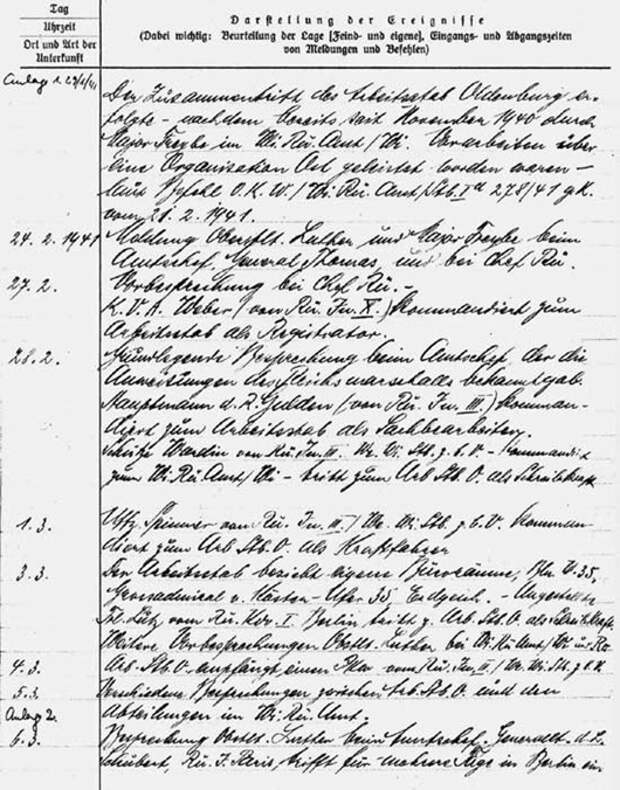 Tag
Uhrzeit
Ort und Art der
Unterkunft
Darstellung der Ereignisse
(Dabei wichtig: Beurteilung der Lage [Feind- und eigene], Eingangs- und Abgangszeiten
von Meldungen und Befehlen)
Anlage 1
Der Zusammentritt des Arbeitsstab Oldenburg er-
folgte - nachdem bereits seit November 1940 durch
Major Freybe im Wi.Rü.Amt/Wi. Vorarbeiten über
eine Organisation Ost geleistet worden waren -
laut Befehl O.K.W./Wi.Rü.Amt/Stb. 278/41 g.K.
vom 21.2.1941.
24. 2. 1941 Meldung Oberstlt. Luther und Major Freybe beim
Amtschef, General Thomas, und bei Chef Rü.
27. 2. Vorbesprechung bei Chef Rü. -
K.V.A. Weber (von Rü. In. X.) kommandiert zum
Arbeitsstab als Registrator.
28. 2. Grundlegende Besprechung beim Amtschef, der die
Anweisungen des Reichsmarschalls bekanntgab.
Hauptmann d. R. Gulden (von Rü. In. III.) komman-
diert zum Arbeitsstab als Sachbearbeiter.
Schütze von Rü. In. III. We. Wi. Stb. z.b.V. - kommandiert
zum Wi.Rü.Amt/Wi - tritt zum Arb. Stb. O. als Schreibkraft
1. 3. Uffz. Spinner von Rü. In. III/We. Wi. Stb. z.b.V. komman-
diert zum Arb. Stb. O. als Kraftfahrer
3. 3. Der Arbeitsstab bezieht eigene Büroräume, Bln. W.35,
Grossadmiral v. Köster-Ufer 35 Erdgesch. - Angestellte
Frl. Lutz vom Rü. Kdo. I. Berlin tritt z. Arb. Stb. O als Schreibkraft
Weitere Vorbesprechungen Obstlt. Luther bei Wi Rü Amt/Wi und Ro
4. 3. Arb. Stb. O. empfängt einen Pkw vom Rü. In. III/We. Wi. Stb. z.b.V.
5. 3. Verschiedene Besprechungen zwischen Arb. Stb. O. und den
Abteilungen im Wi. Rü. Amt.
Anlage 2.
6. 3. Besprechung Obstlt. Luther beim Amtschef. Generallt.
Schubert, Rü. J. Paris, trifft für mehrere Tage in Berlin ein